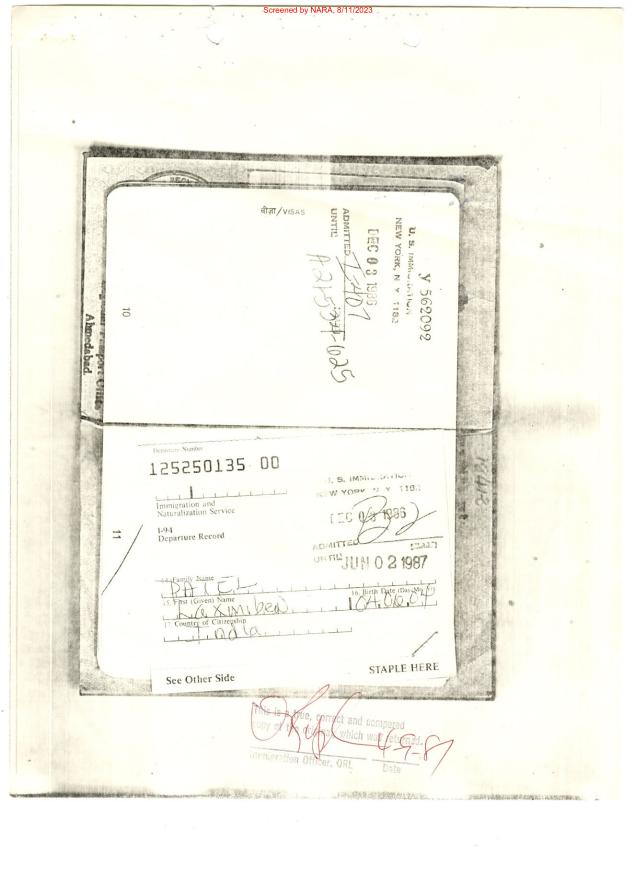 Screened by NARA, 8/11/2023
वीज़ा/VISAS
Y 562092
U. S. IMMIGRATION
NEW YORK, N. Y. 1182
DEC 03 1986
ADMITTED
UNTIL
10
Passport Office
Ahmedabad.
Departure Number
125250135 00
Immigration and
Naturalization Service
I-94
Departure Record
U. S. IMMIGRATION
NEW YORK N Y 1182
DEC 03 1986
ADMITTED
UNTIL JUN 02 1987
11
14. Family Name
PATEL
15. First (Given) Name
Laxmiben
16. Birth Date (Day Mo Yr)
17. Country of Citizenship
India
See Other Side
STAPLE HERE
This is a true, correct and compared
copy of the which was returned.
4-5-87
Immigration Officer, ORL
Date